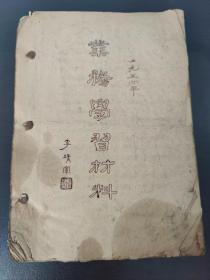 一九五六年
業務學習材料
李